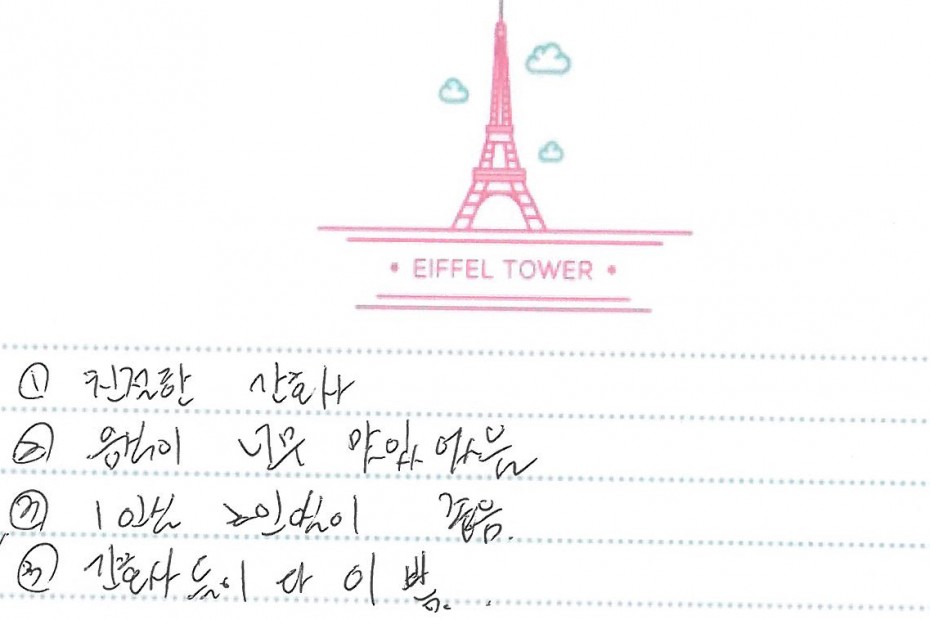 • EIFFEL TOWER •
① 친절한 간호사
② 음식이 너무 맛있었음
③ 1인실 2인실이 좋음.
간호사들이 다 이쁨..